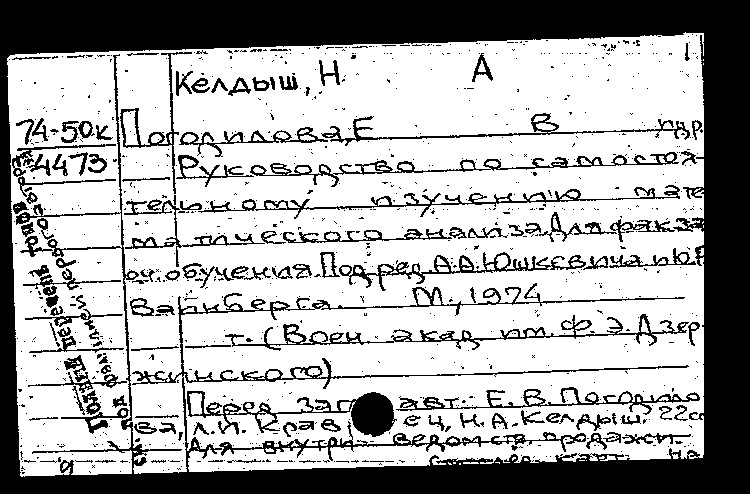 Келдыш, Н А
74-50к Погодилова, Е В и др.
4473 Руководство по самостоя-
тельному изучению мате
матического анализа. Для фак. за
оч. обучения. Под ред. А.А. Юшкевича и Ю.Р.
Вайнберга. М., 1974
т. (Воен. акад. им. Ф.Э. Дзер-
жинского)
Перед заг. авт.: Е.В. Погодило
ва, Л.И. Крав ец, Н.А. Келдыш. 22см
Для внутри ведомств. продажи.
карт. на
Полный перечень томов
под фамилией первого автора